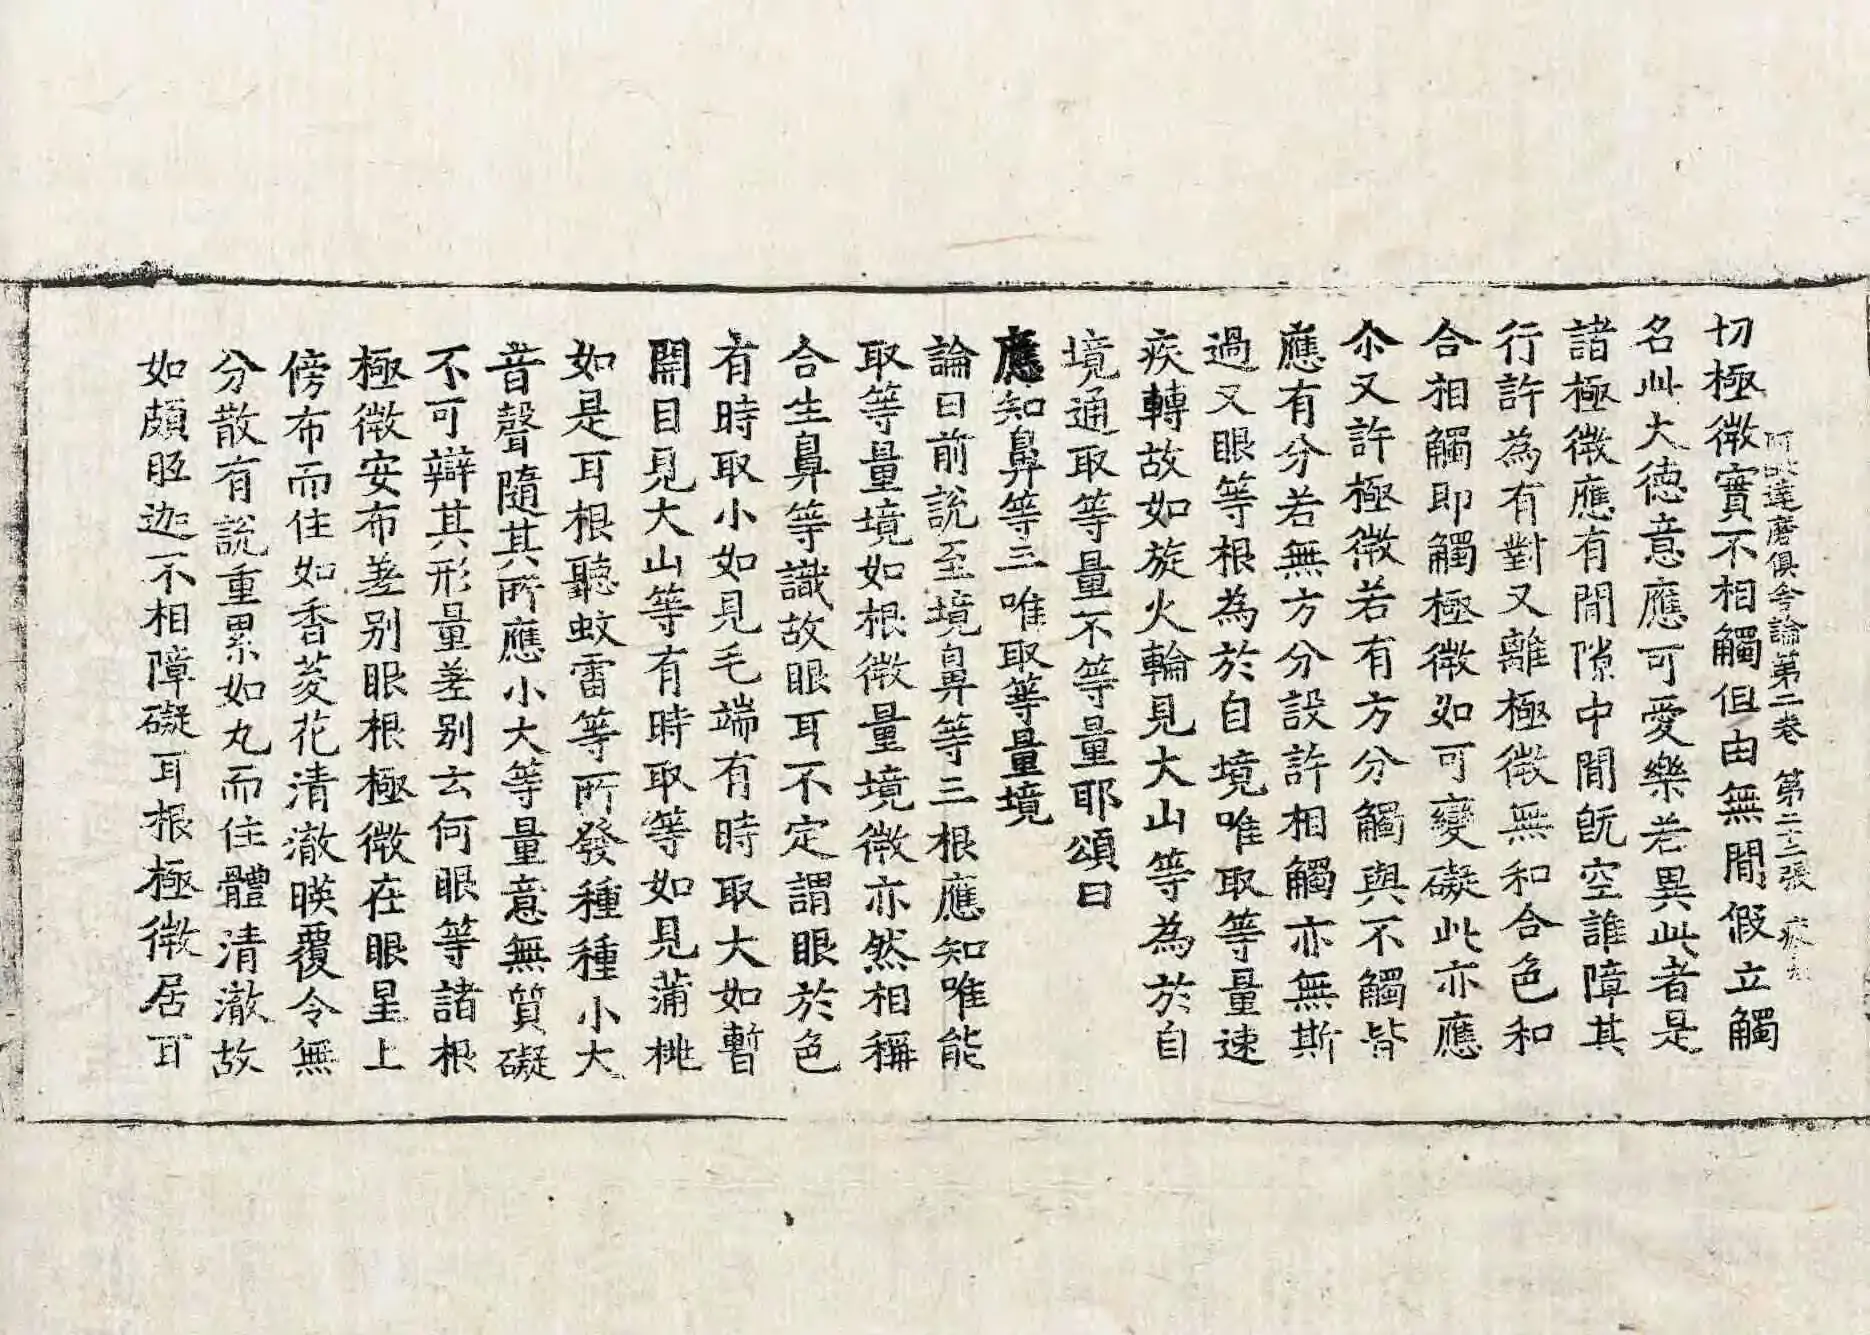 切極微實不相觸但由無間假立觸
阿毗達磨俱舍論第二卷 第二十三張
名此大德意應可愛樂若異此者是
諸極微應有閒隙中閒旣空誰障其
行許為有對又離極微無和合色和
合相觸即觸極微如可變礙此亦應
尒又許極微若有方分觸與不觸皆
應有分若無方分設許相觸亦無斯
過又眼等根為於自境唯取等量速
疾轉故如旋火輪見大山等為於自
境通取等量不等量耶頌曰
應知鼻等三唯取等量境
論曰前說至境鼻等三根應知唯能
取等量境如根微量境微亦然相稱
合生鼻等識故眼耳不定謂眼於色
有時取小如見毛端有時取大如暫
開目見大山等有時取等如見蒲桃
如是耳根聽蚊雷等所發種種小大
音聲隨其所應小大等量意無質礙
不可辯其形量差別云何眼等諸根
極微安布差別眼根極微在眼星上
傍布而住如香荾花清澈暎覆令無
分散有說重累如丸而住體清澈故
如頗胝迦不相障礙耳根極微居耳